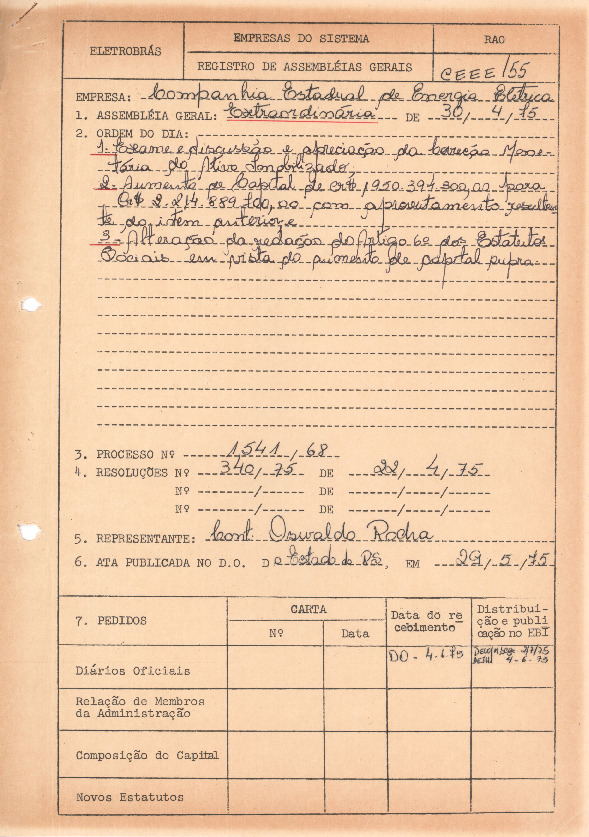 ELETROBRÁS
EMPRESAS DO SISTEMA
RAO
REGISTRO DE ASSEMBLÉIAS GERAIS
CEEE/55
EMPRESA: Companhia Estadual de Energia Elétrica
1. ASSEMBLÉIA GERAL: Extraordinária DE 30/ 4 /75
2. ORDEM DO DIA:
1- Exame e discussão e apreciação da Correção Mone-
tária do Ativo Imobilizado,
2- Aumento de Capital de Cr$ 1.950.391.300,00 para
Cr$ 2.214.889.700,00 com aproveitamento resultan
te do item anterior, e
3- Alteração da redação do Artigo 6º dos Estatutos
Sociais em vista do aumento de capital supra
3. PROCESSO Nº 1541/68
4. RESOLUÇÕES Nº 340/75 DE 22/ 4 /75
Nº ------/------ DE ------/------/------
Nº ------/------ DE ------/------/------
5. REPRESENTANTE: Cont. Oswaldo Rocha
6. ATA PUBLICADA NO D.O. Do Estado do RS, EM 29/ 5 /75
7. PEDIDOS
CARTA
Nº
Data
Data do re
cebimento
Distribui-
ção e publi
cação no EBI
Diários Oficiais
DO - 4-6-75
2/7/75
4-6-75
Relação de Membros
da Administração
Composição do Capital
Novos Estatutos